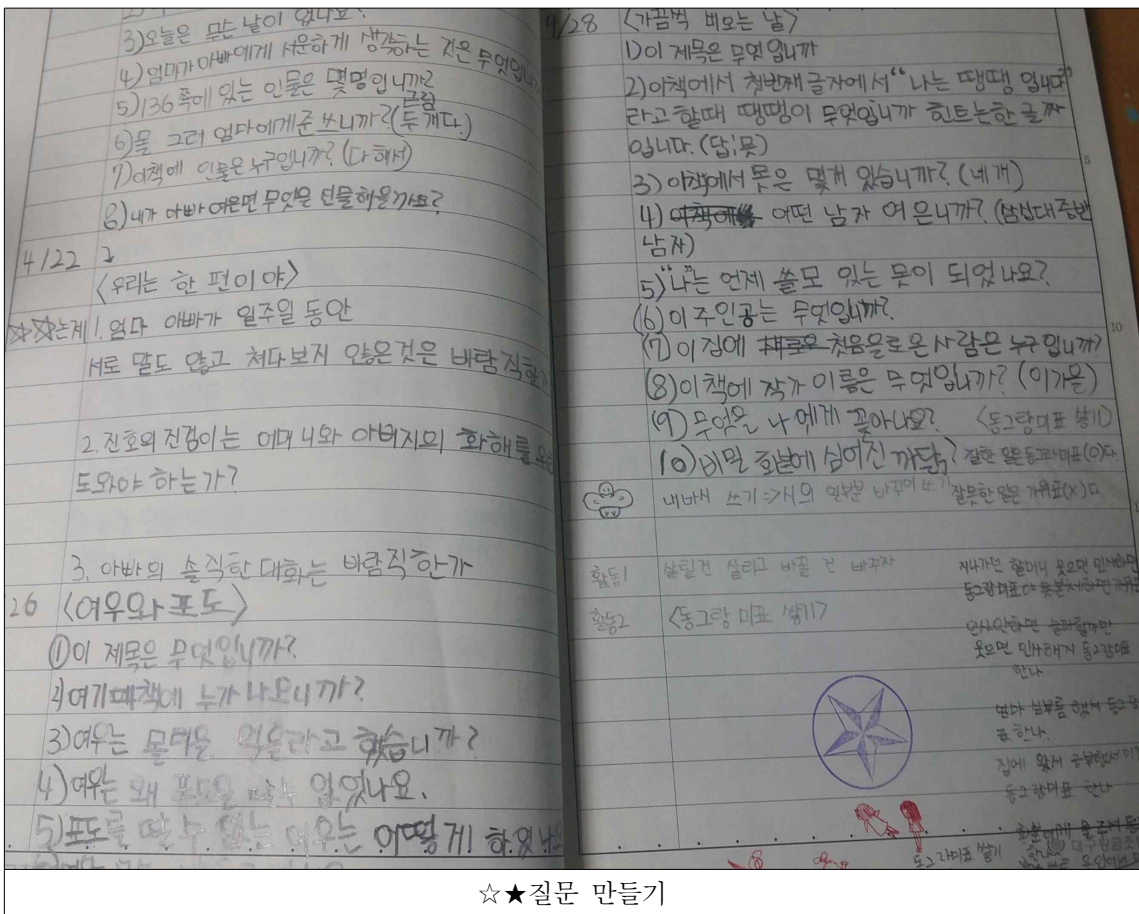 3) 오늘은 무슨 날이 었나요?
4) 엄마가 아빠에게 서운하게 생각하는 것은 무엇입니
5) 136쪽에 있는 인물은 몇명입니까?
그림
6) 몰 그려 엄마에게준 쓰니까? (두 개다.)
7) 이책에 인물은 누구입니까? (다 해서)
8) 내가 아빠 여은면 무엇을 선물해을까요?
4/22
<우리는 한 편이야>
논제 1. 엄마 아빠가 일주일 동안
서로 말도 않고 쳐다보지 않은것은 바람직한
2. 진호와 진경이는 어머니와 아버지의 화해를
도와야 하는가?
3. 아빠의 솔직한 대화는 바람직한가
26 <여우와 포도>
① 이 제목은 무엇입니까?
2) 여기 책에 누가 나오니까?
3) 여우는 했습니까?
4) 여우는 왜 포도을 없었나요.
5) 포도를 딸 수 없는 여우는 어떻게 하였나
4/28 <가끔씩 비오는 날>
1) 이 제목은 무엇입니까
2) 이책에서 첫번째 글자에서 “나는 땡땡 입니다”
라고 할때 땡땡이 무엇입니까 힌트는한 글짜
입니다. (답;못)
3) 이책에서 못은 몇개 있습니까? (네 개)
4) 어떤 남자 여 은니까? (삼십대 중반
남자)
5) “나”는 언제 쓸모 있는 못이 되었나요?
(6) 이 주인공는 무엇입니까?
(7) 이집에 첫음을로온 사람은 누구입니까?
(8) 이 책에 작가 이름은 무엇입니까? (이가을)
(9) 무엇을 나에게 꽂아나요? <동그랑미표 쌓기>
(10) 비밀 화분에 심어진 까닭? 잘한 일은 동그라미표(O)다.
내바시 쓰기=>시의 일부분 바꾸어 쓰기 잘못한 일은 가위표(X)다.
활동1 살릴건 살리고 바꿀 건 바꾸자
지나가던 할머니 웃으면 인사하면
활동2 <동그랑 미표 쌓기>
웃으면 인사해지 동그랑미표
한나
엄마 심부름 했서 동그랑
표 한나.
집에 왔서 공부했서
동그랑미표 한나
동그라미표 쌓기
☆★질문 만들기